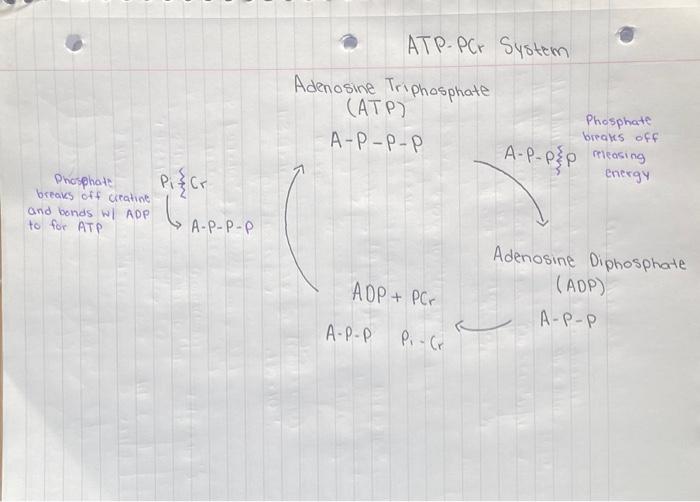 ATP-PCr System
Adenosine Triphosphate
(ATP)
A-P-P-P
A-P-P P
Phosphate
breaks off
releasing
energy
Adenosine Diphosphate
(ADP)
A-P-P
ADP + PCr
A-P-P Pi-Cr
Phosphate
breaks off creatine
and bonds w/ ADP
to for ATP
Pi Cr
A-P-P-P